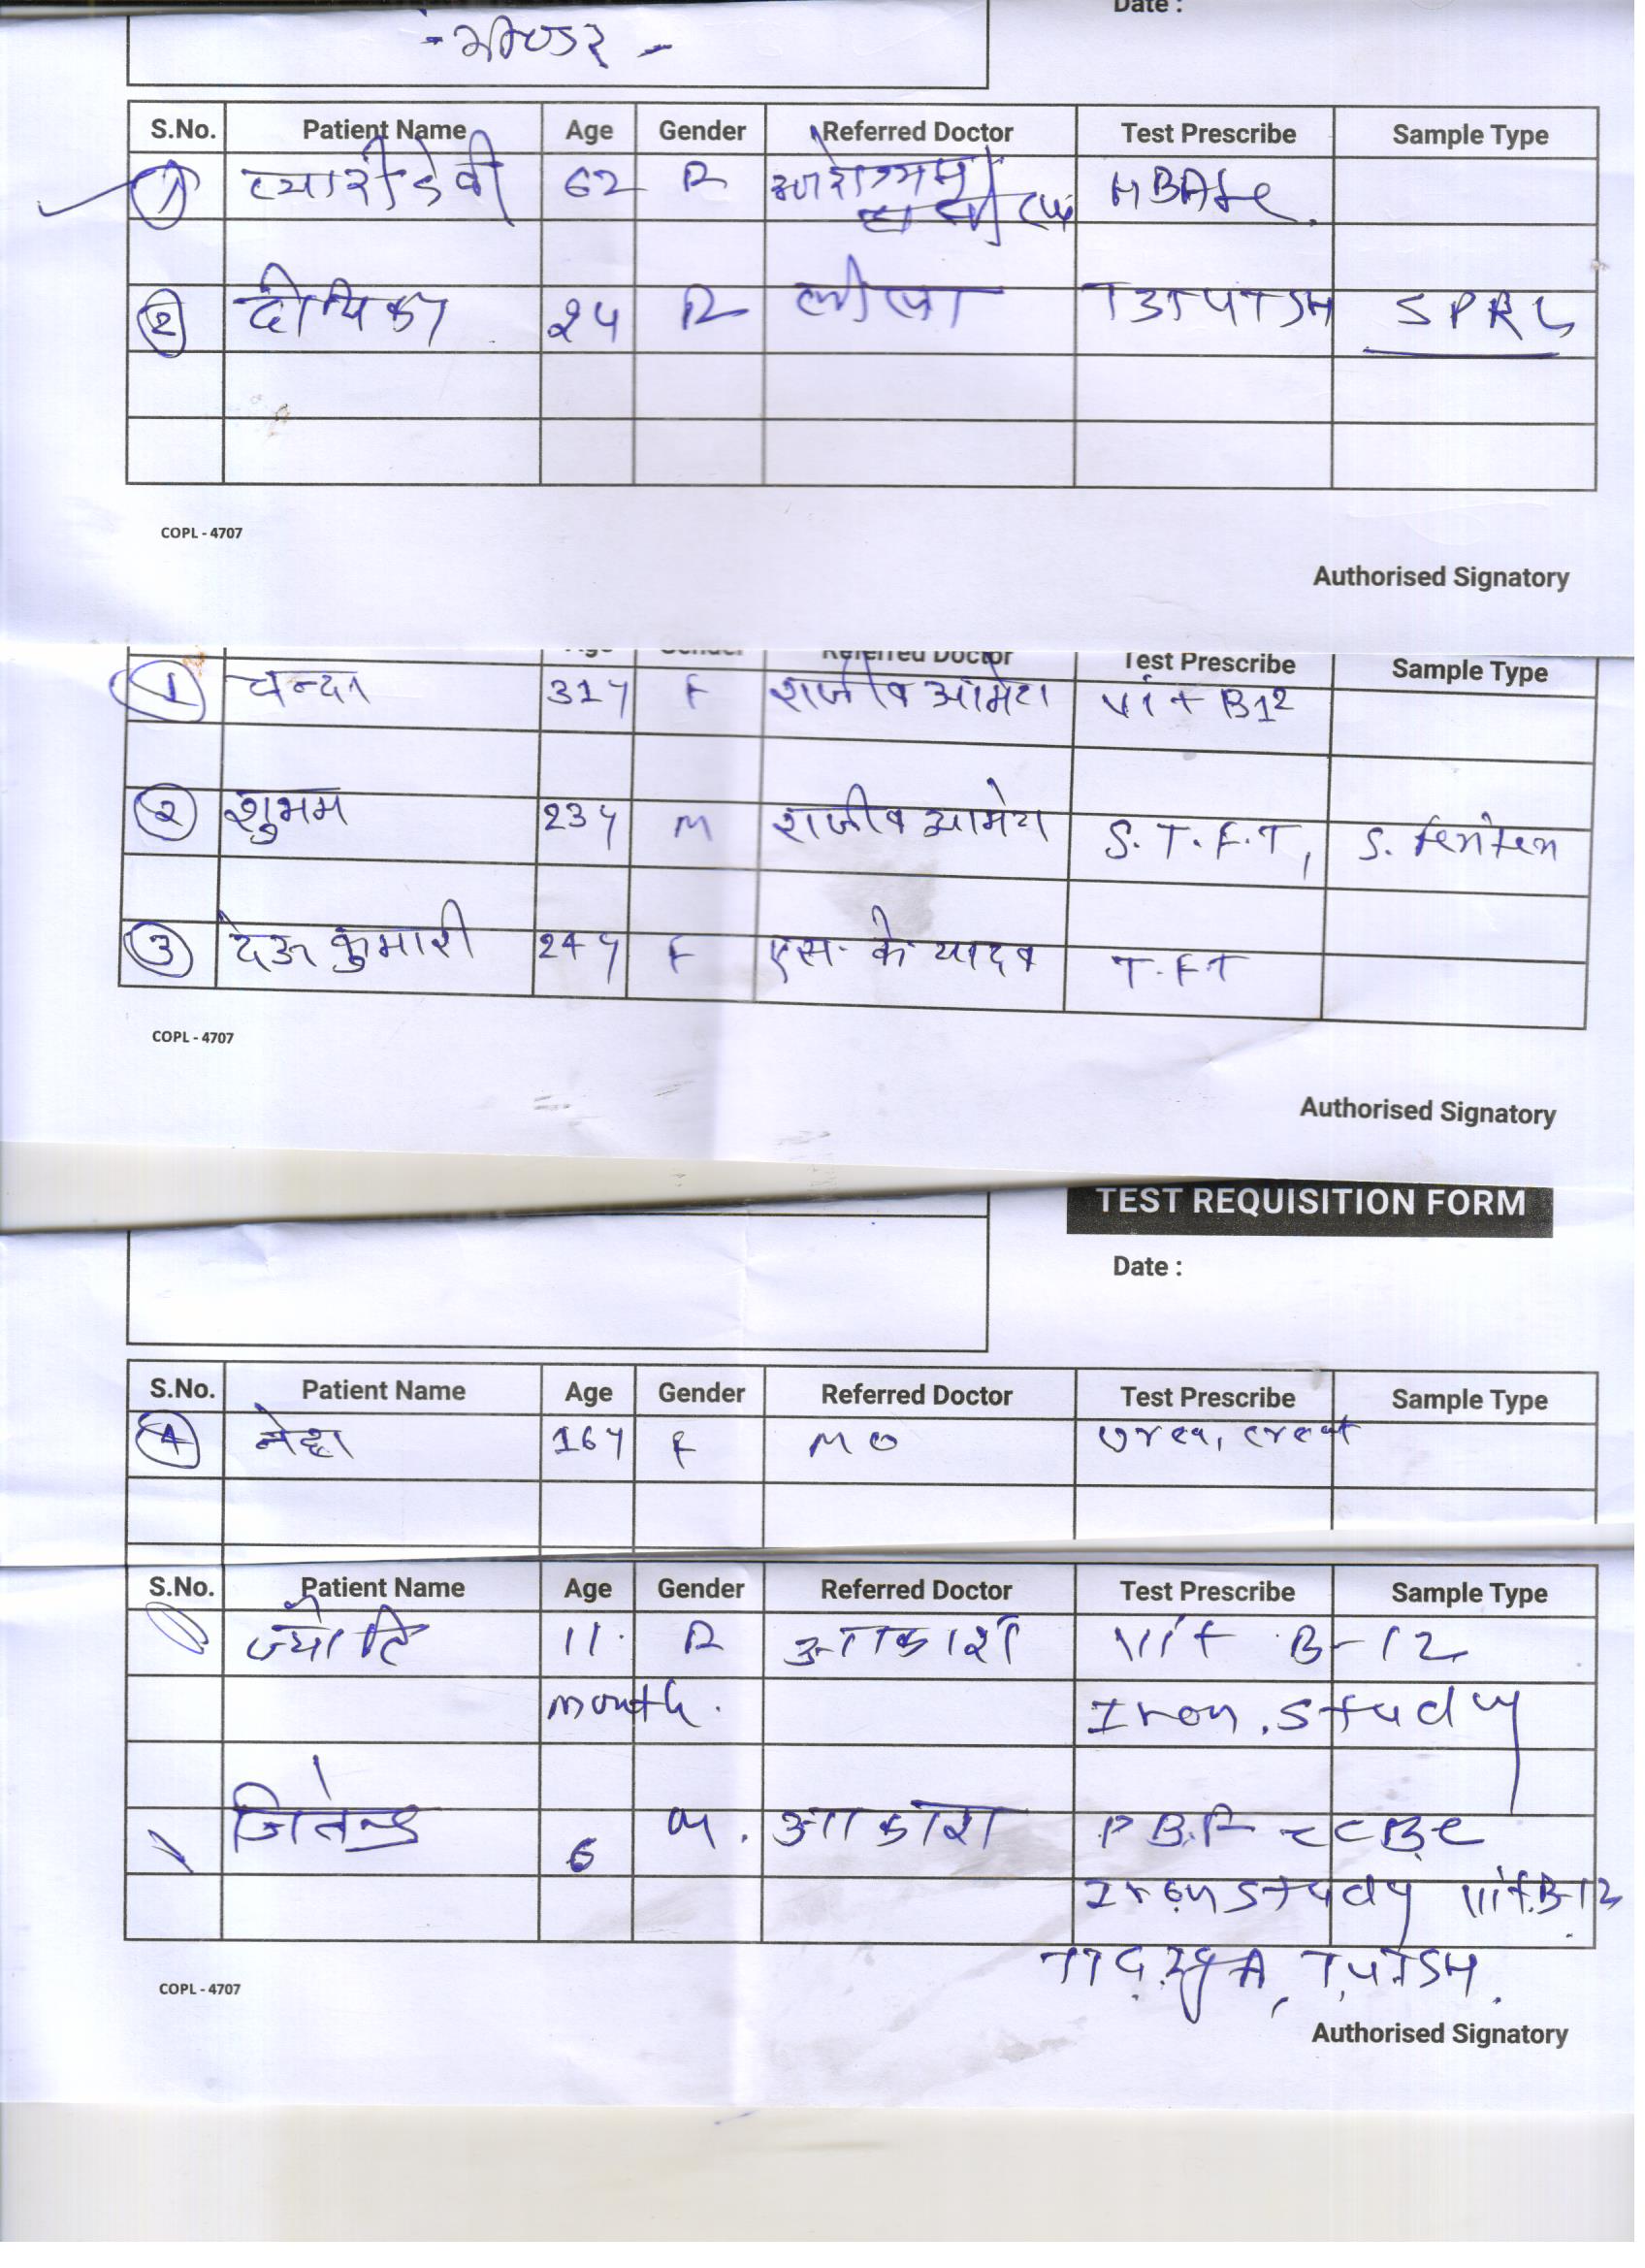 Date :
S.No. Patient Name Age Gender Referred Doctor Test Prescribe Sample Type
1 प्यारी देवी 62 F HBA1c
2 दीपिका 24 F T3T4TSH
COPL - 4707
Authorised Signatory
Age Gender Referred Doctor Test Prescribe Sample Type
1 चन्दा 31y F राजीव आमेटा vit B12
2 शुभम 23y M राजीव आमेटा S. T. F. T, S.
3 देऊ कुमारी 24y F एस. के यादव T. F. T
COPL - 4707
Authorised Signatory
TEST REQUISITION FORM
Date :
S.No. Patient Name Age Gender Referred Doctor Test Prescribe Sample Type
4 नेहा 16y F MO Urea, creat
S.No. Patient Name Age Gender Referred Doctor Test Prescribe Sample Type
ज्योति 11 F आकाश Vit B-12
month. Iron. study
जितेन्द्र 6 M. आकाश P.B.F CBC
Iron study Vit.B-12
TTG IgA, T4TSH.
COPL - 4707
Authorised Signatory